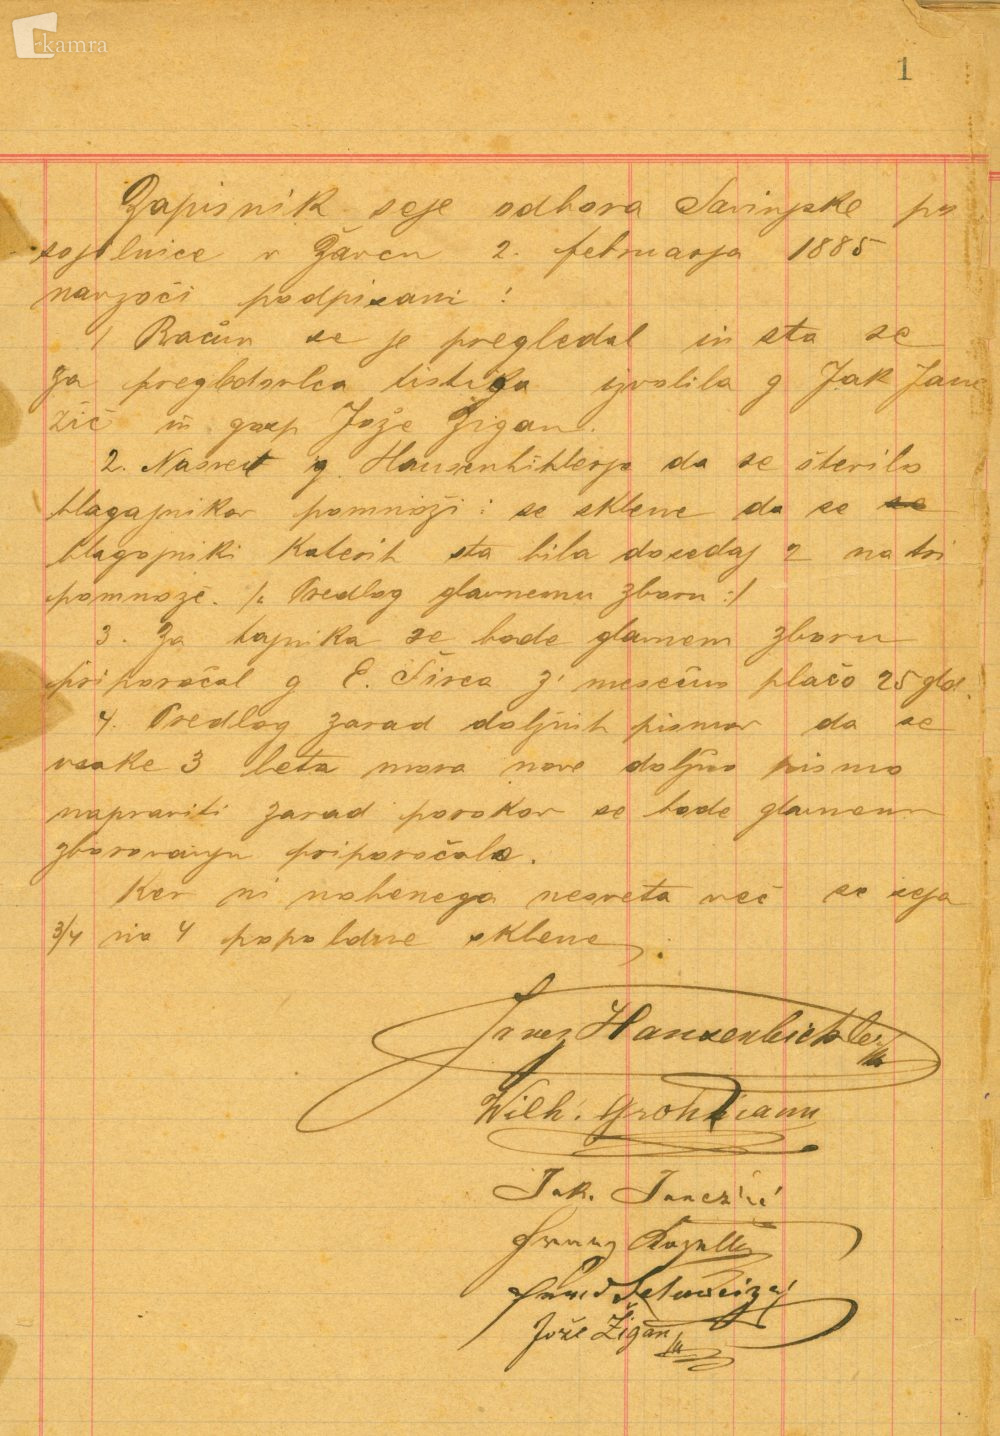 kamra
1
Zapisnik seje odbora Savinjske po
sojilnice v Žavcu 2. februarja 1885
navzoči podpisani :
1 Račun se je pregledal in sta se
za pregledovlca tistiga izvolila g Jak Jane
žič in gosp Jože Žigan.
2. Nasvet g. Hausenbihlerja da se število
blagajnikov pomnoži : se sklene da se se
blagajniki katerih sta bila dosedaj 2 na tri
pomnože. /: Predlog glavnemu zboru :/
3. Za tajnika se bode glavnem zboru
priporočal g E. Širca z' mesečno plačo 25 gld.
4. Predlog zarad dolžnih pismov da se
vsake 3 leta mora nove dolžno pismo
napraviti zarad porokov se bode glavnemu
zborovanju priporočalo.
Ker ni nobenega nesveta več se seja
3/4 na 4 popoldne sklene
Janez Hausenbichler
Wilh. Grohmann
Jak. Janežič
Franz
Jože Žigan